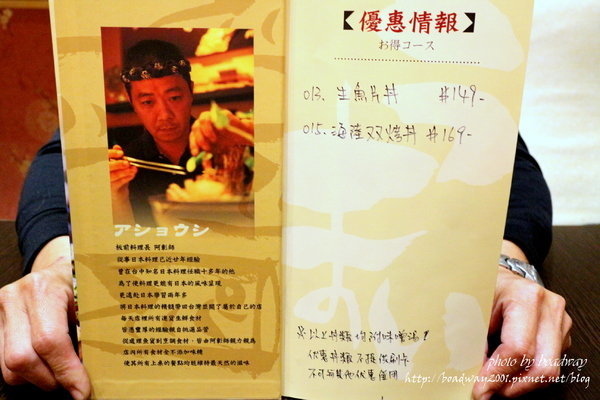 アショウシ
板前料理長 阿彰師
從事日本料理已近廿年經驗
曾在台中知名日本料理任職十多年的他
為了使料理更能有日本的風味呈現
更遠赴日本學習兩年多
將日本料理的精髓帶回台灣並開了屬於自己的店
每天店裡所有運貨生鮮食材
皆憑豐厚的經驗親自挑選品質
從處理魚貨到烹調食材，皆由阿彰師親力親為
店內所有食材全不添加味精
使其所有上桌的餐點均能維持最天然的滋味
【優惠情報】
お得コース
013. 生魚片丼 #149-
015. 海陸双烤丼 #169-
※以上丼類均附味噌湯!
優惠丼類不接做刷卡
不可與其他优惠併用
photo by boadway
http://boadway2001.pixnet.net/blog